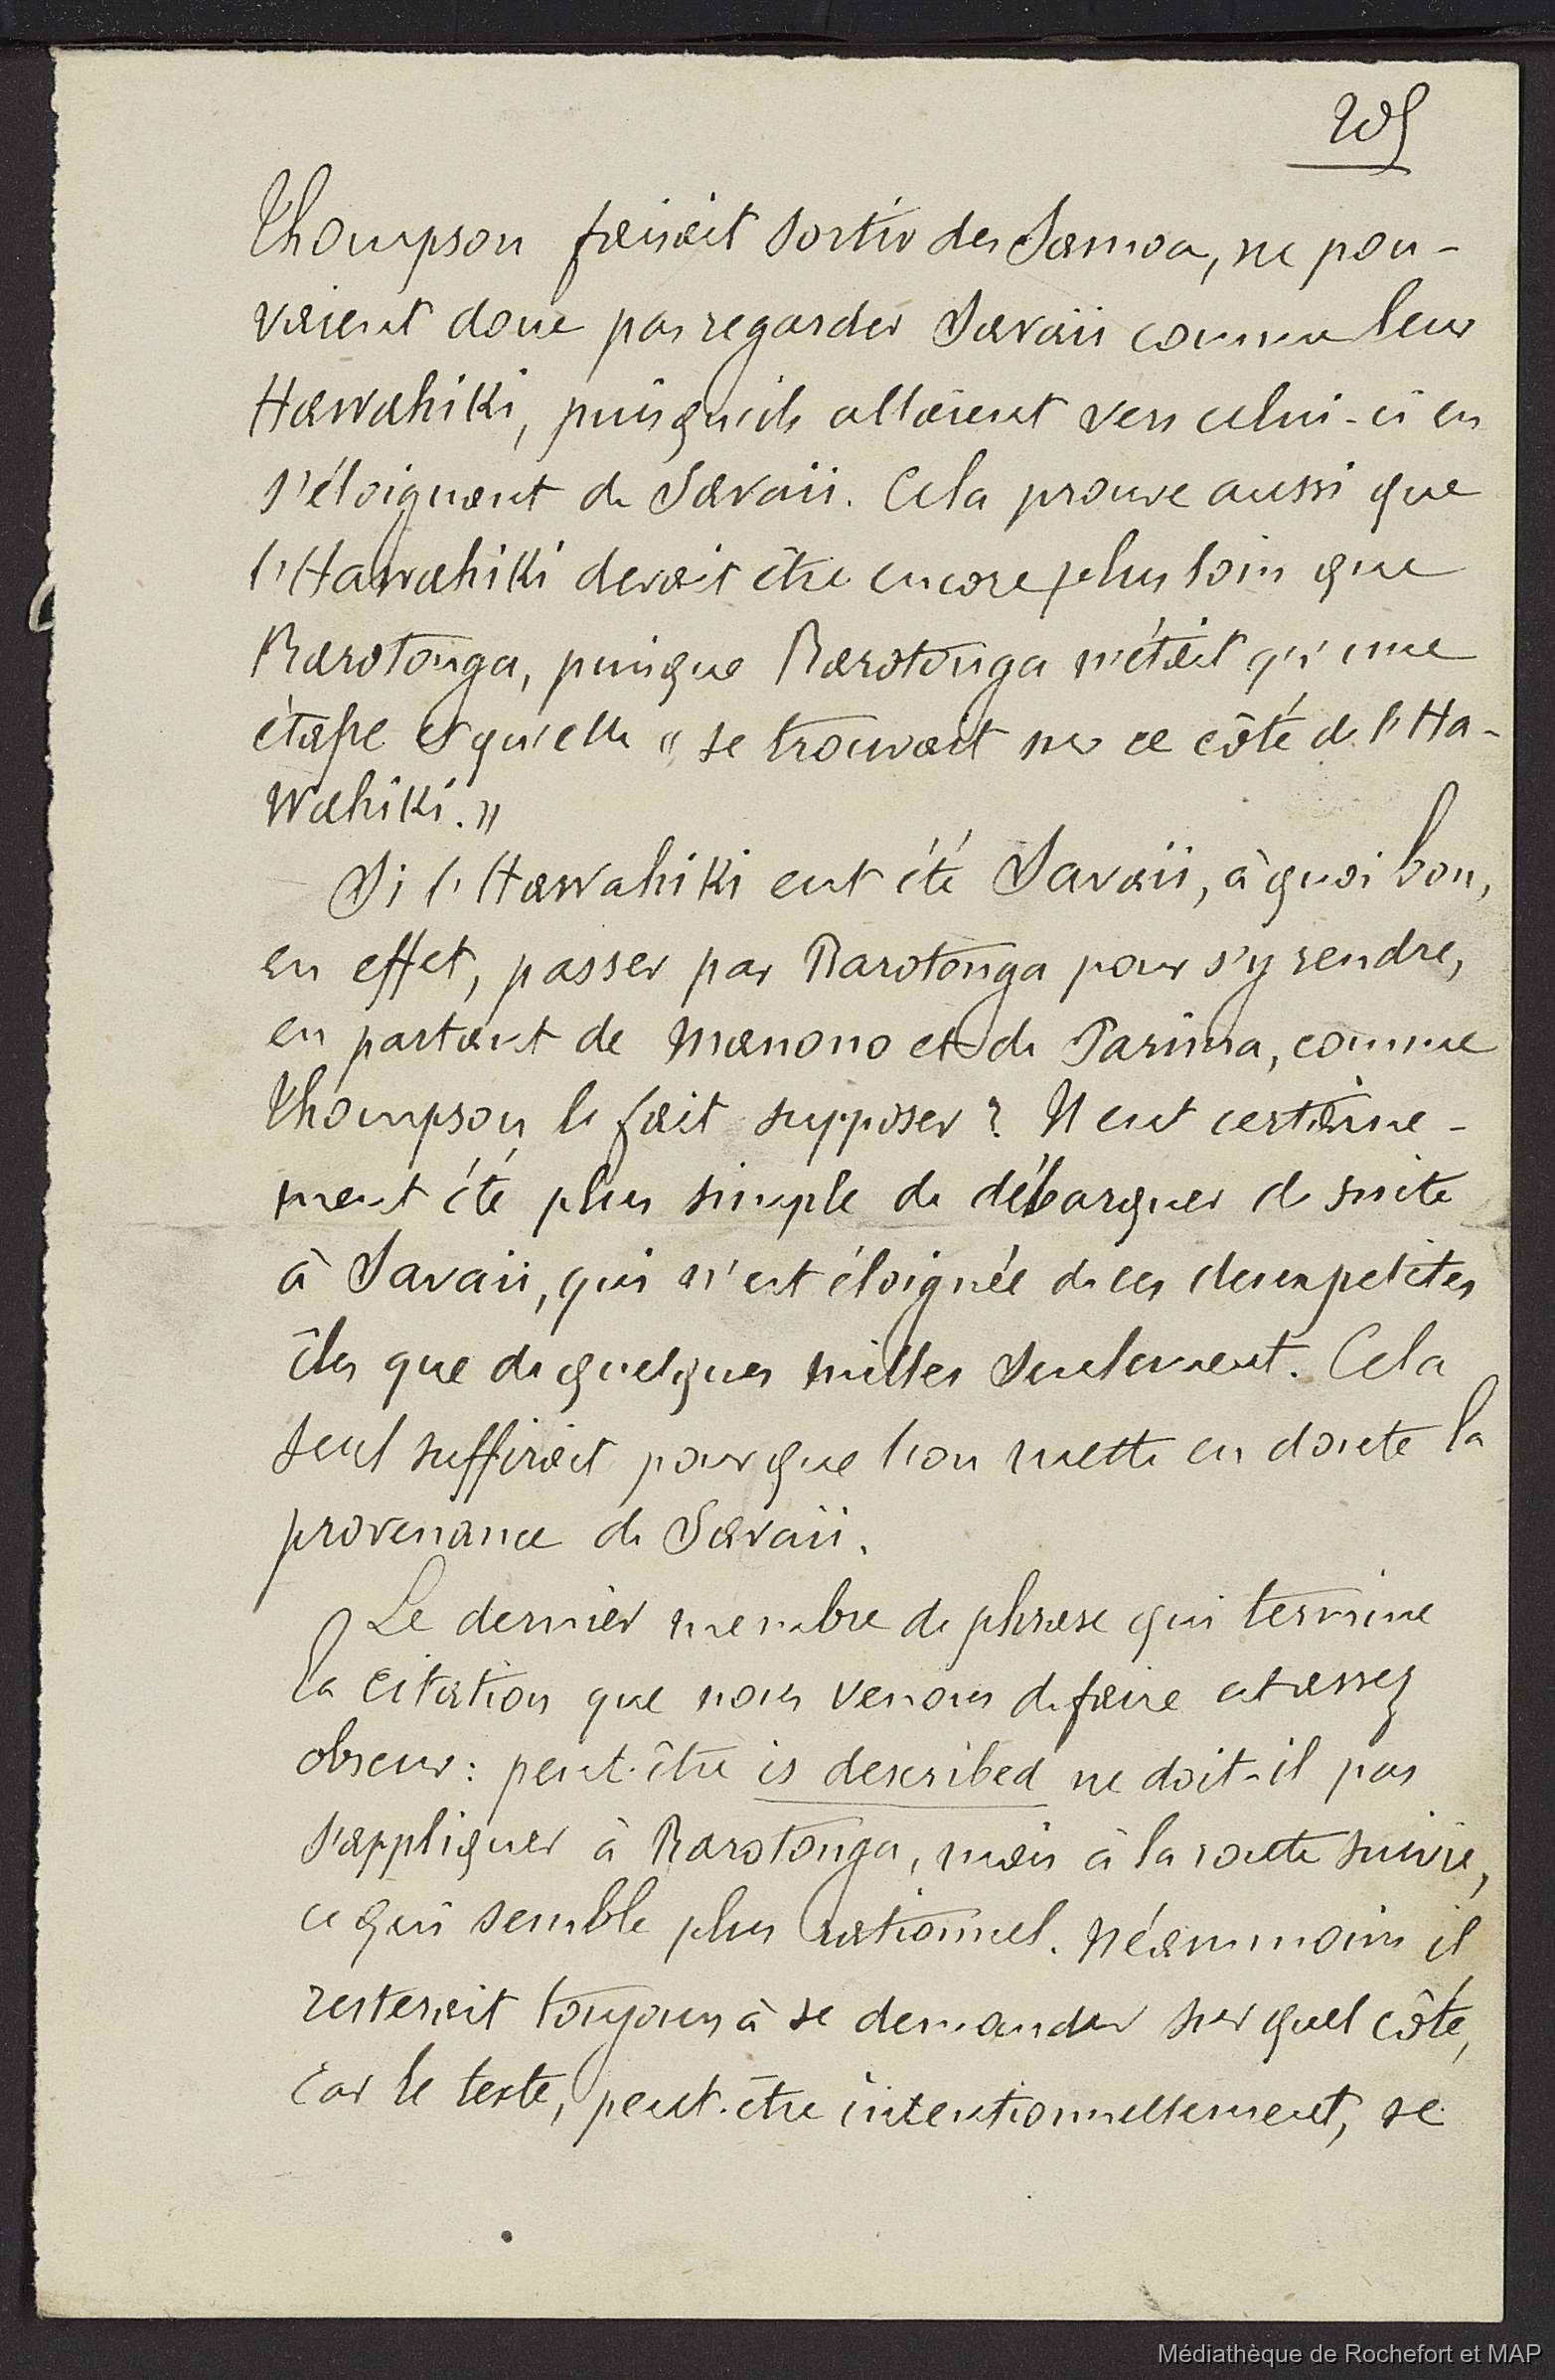 205
Thompson faisait sortir des Samoa, ne pou-
vaient donc pas regarder Savaii comme leur
Hawahiki, puisqu'ils allaient vers celui-ci en
s'éloignant de Savaii. Cela prouve aussi que
l'Hawahiki devait être encore plus loin que
Rarotonga, puisque Rarotonga n'était qu'une
étape et qu'elle « se trouvait sur ce côté de l'Ha-
wahiki. »
Si l'Hawahiki eut été Savaii, à quoi bon,
en effet, passer par Rarotonga pour s'y rendre,
en partant de Manono et de Parima, comme
Thompson le fait supposer ? Il eut certaine-
ment été plus simple de débarquer de suite
à Savaii, qui n'est éloignée de ces deux petites
îles que de quelques milles seulement. Cela
seul suffirait pour que l'on mette en doute la
provenance de Savaii.
Le dernier membre de phrase qui termine
la citation que nous venons de faire est assez
obscur : peut-être is described ne doit-il pas
s'appliquer à Rarotonga, mais à la route suivie,
ce qui semble plus rationnel. Néanmoins il
resterait toujours à se demander sur quel côté,
car le texte, peut-être intentionnellement, se
Médiathèque de Rochefort et MAP